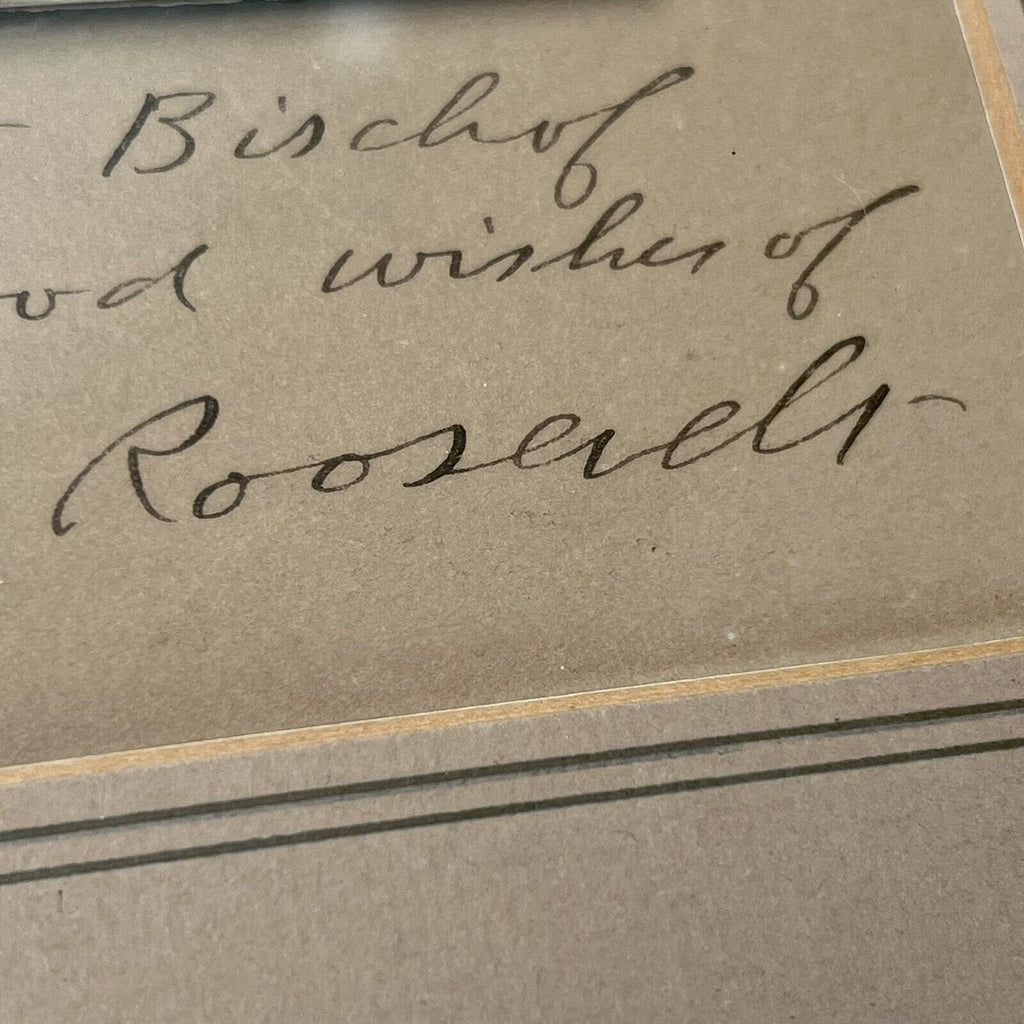 Bischof
ood wishes of
Roosevelt